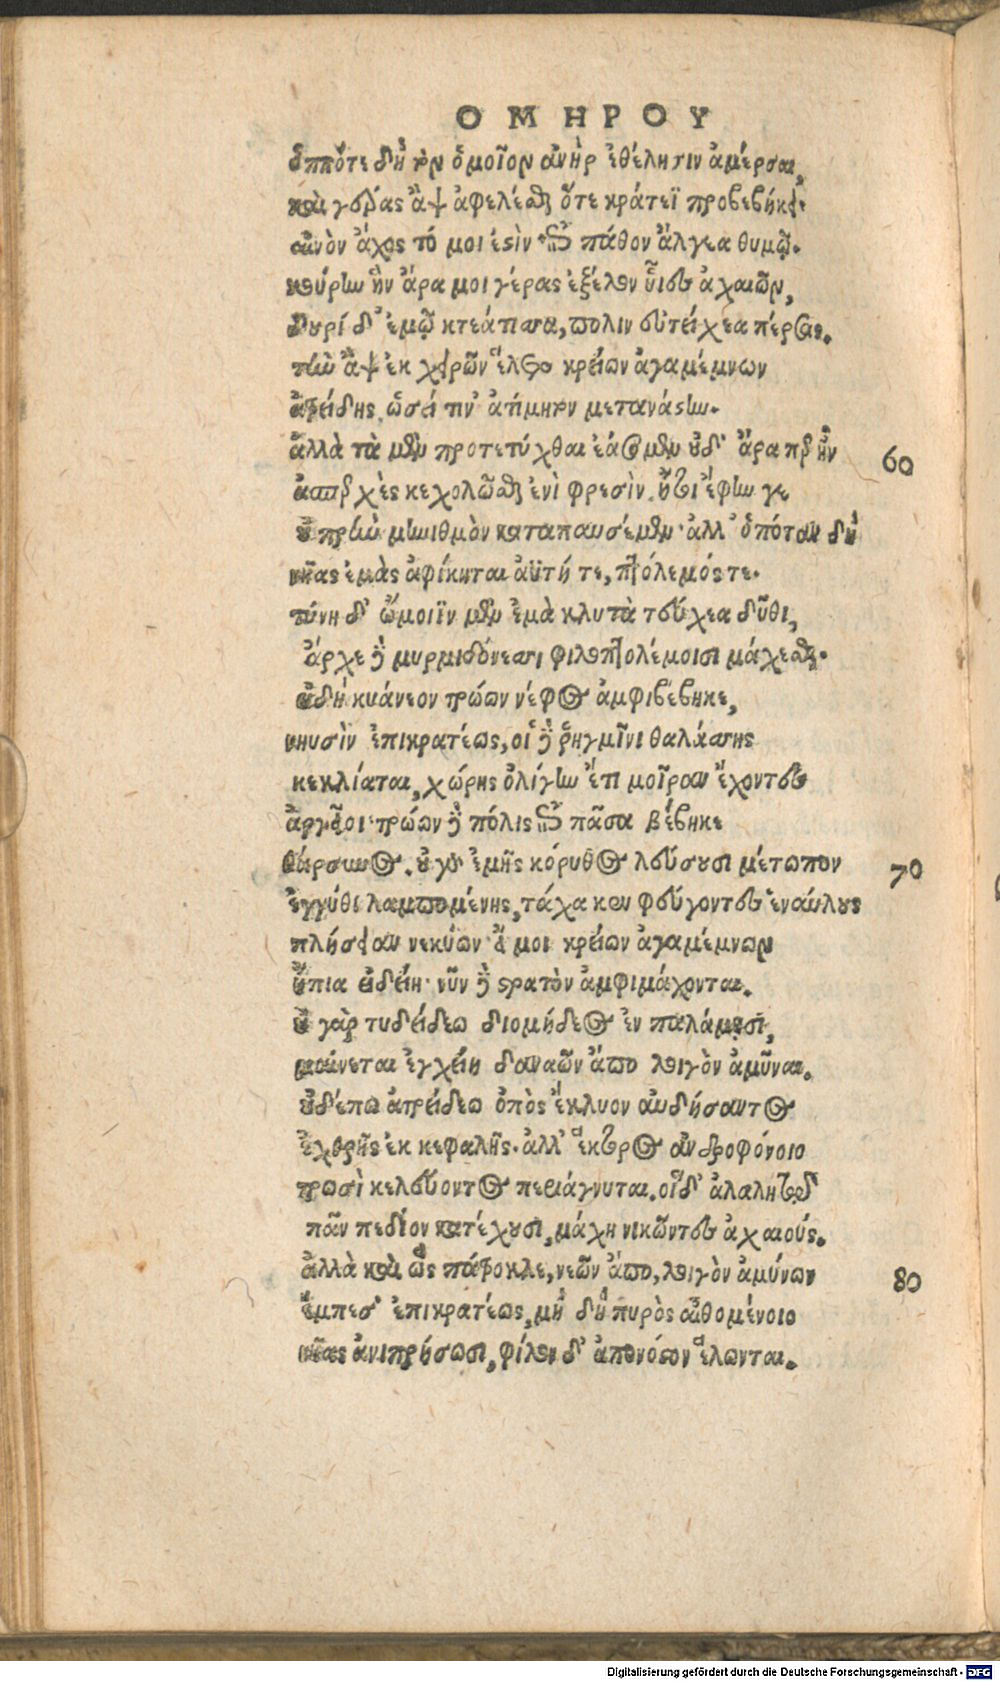 ΟΜΗΡΟΥ
ὁππότε δὴ τὸν ὁμοῖον ἀνὴρ ἐθέλησιν ἀμέρσαι,
καὶ γέρας ἂψ ἀφελέσθαι ὅτε κράτεϊ προβεβήκει·
αἰνὸν ἄχος τό μοι ἐστὶν· ἐπεὶ πάθον ἄλγεα θυμῷ.
κούρην ἣν ἄρα μοι γέρας ἔξελον υἷες ἀχαιῶν,
δουρὶ δ' ἐμῷ κτεάτισσα, πόλιν εὐτείχεα πέρσας.
τὴν ἂψ ἐκ χειρῶν ἕλετο κρείων ἀγαμέμνων
ἀτρείδης, ὡσεί τιν' ἀτίμητον μετανάστην.
ἀλλὰ τὰ μὲν προτετύχθαι ἐάσομεν οὐδ' ἄρα πως ἦν
ἀσπερχὲς κεχολῶσθαι ἐνὶ φρεσὶν. ἤτοι ἔφην γε
οὐ πρὶν μηνιθμὸν καταπαυσέμεν· ἀλλ' ὁπόταν δὴ
νῆας ἐμὰς ἀφίκηται ἀϋτή τε, πτόλεμός τε.
τύνη δ' ὤμοιϊν μὲν ἐμὰ κλυτὰ τεύχεα δῦθι,
ἄρχε δὲ μυρμιδόνεσσι φιλοπτολέμοισι μάχεσθαι.
εἰ δὴ κυάνεον τρώων νέφος ἀμφιβέβηκε,
νηυσὶν ἐπικρατέως, οἱ δὲ ῥηγμῖνι θαλάσσης
κεκλίαται, χώρης ὀλίγην ἔτι μοῖραν ἔχοντες
ἀργεῖοι· τρώων δὲ πόλις ἐπὶ πᾶσα βέβηκε
θάρσυνος. οὐ γὰρ ἐμῆς κόρυθος λεύσουσι μέτωπον
ἐγγύθι λαμπομένης, τάχα κεν φεύγοντες ἐναύλους
πλήσειαν νεκύων· εἴ μοι κρείων ἀγαμέμνων
ἤπια εἰδείη· νῦν δὲ στρατὸν ἀμφιμάχονται.
οὐ γὰρ τυδείδεω διομήδεος ἐν παλάμῃσι,
μαίνεται ἐγχείη δαναῶν ἄπο λοιγὸν ἀμῦναι.
οὐδέπω ἀτρείδεω ὀπὸς ἔκλυον αὐδήσαντος
ἐχθρῆς ἐκ κεφαλῆς. ἀλλ' ἕκτορος ἀνδροφόνοιο
τρωσὶ κελεύοντος περιάγνυται. οἱ δ' ἀλαλητῷ
πᾶν πεδίον κατέχουσι, μάχη νικῶντες ἀχαιούς.
ἀλλὰ καὶ ὣς πάτροκλε, νεῶν ἄπο, λοιγὸν ἀμύνων
ἔμπεσ' ἐπικρατέως, μὴ δὴ πυρὸς αἰθομένοιο
νῆας ἐνιπρήσωσι, φίλον δ' ἀπὸ νόστον ἕλωνται.
60
70
80
Digitalisierung gefördert durch die Deutsche Forschungsgemeinschaft - DFG